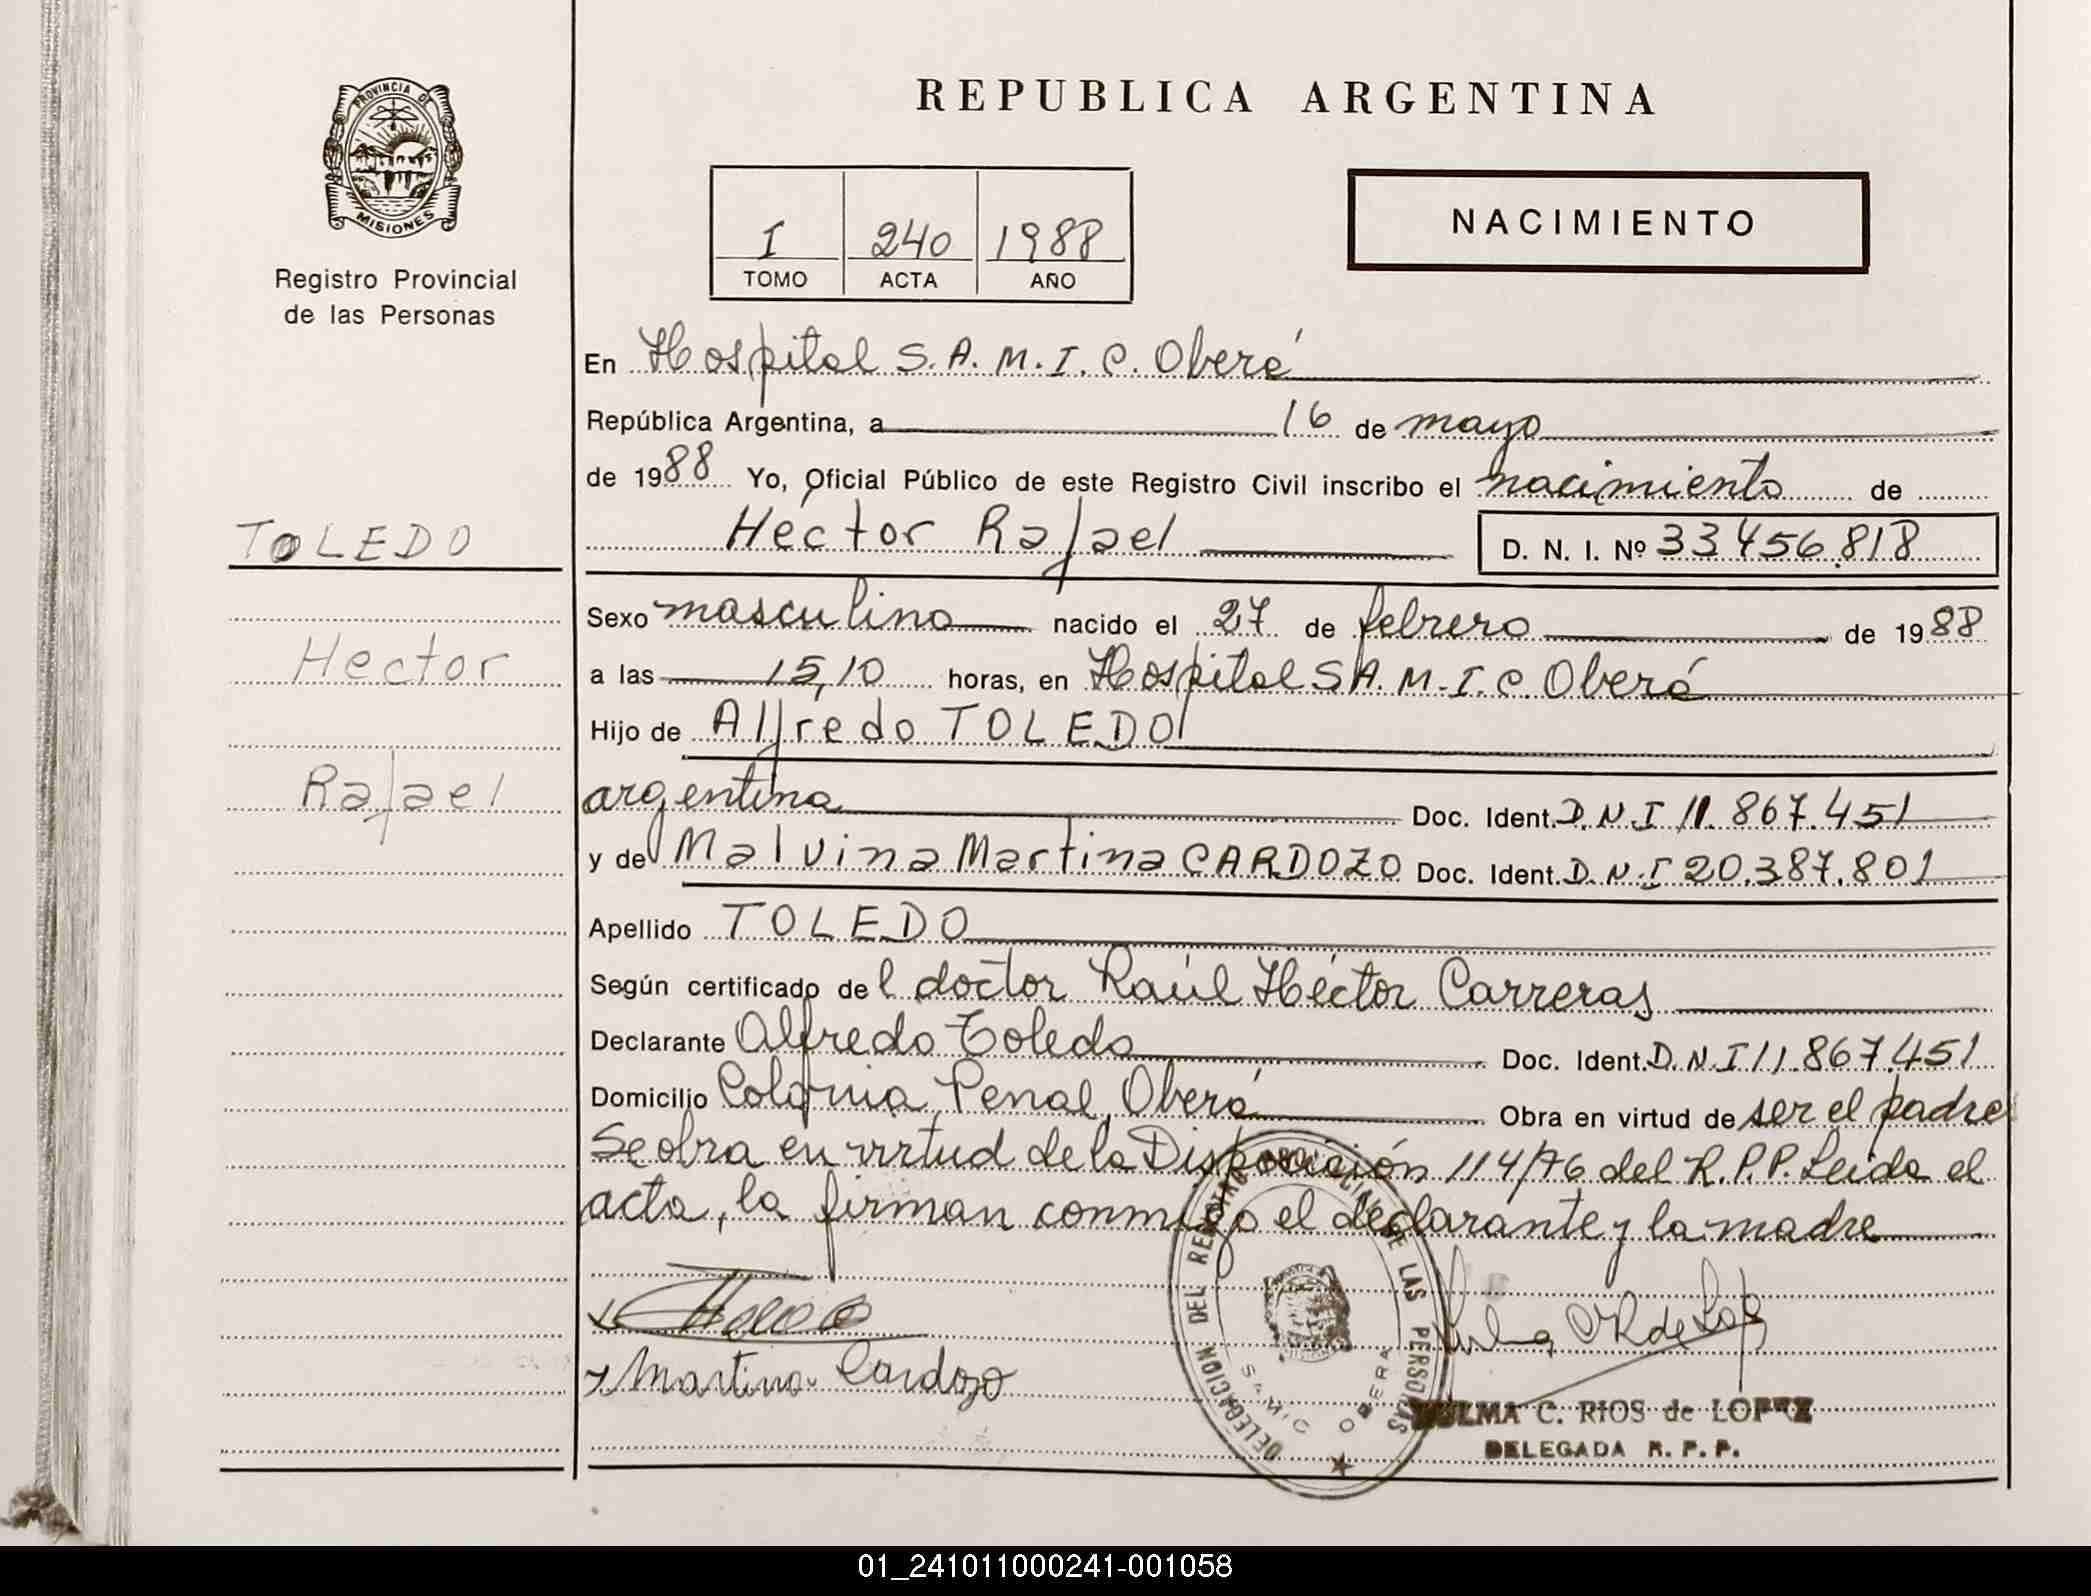 PROVINCIA DE
MISIONES
Registro Provincial
de las Personas
TOLEDO
Hector
Rafael
REPUBLICA ARGENTINA
I 240 1988
TOMO ACTA AÑO
NACIMIENTO
En Hospital S.A.M.I.C. Oberá
República Argentina, a 16 de mayo
de 1988 Yo, Oficial Público de este Registro Civil inscribo el nacimiento de
Héctor Rafael D. N. I. Nº 33456.818
Sexo masculino nacido el 27 de febrero de 1988
a las 15,10 horas, en Hospital S.A.M.I.C. Oberá
Hijo de Alfredo TOLEDO
argentina Doc. Ident. D.N.I 11.867.451
y de Malvina Martina CARDOZO Doc. Ident. D.N.I 20.387.801
Apellido TOLEDO
Según certificado del doctor Raúl Héctor Carreras
Declarante Alfredo Toledo Doc. Ident. D.N.I 11.867.451
Domicilio Colonia Penal, Oberá Obra en virtud de ser el padre
Se obra en virtud de la Disposición 114/76 del R.P.P. Leida el
acta, la firman conmigo el declarante y la madre
Martina Cardozo
DELEGACION DEL REGISTRO PROVINCIAL DE LAS PERSONAS
SAMIC OBERA
ZULMA C. RIOS de LOPEZ
DELEGADA R. P. P.
01_241011000241-001058